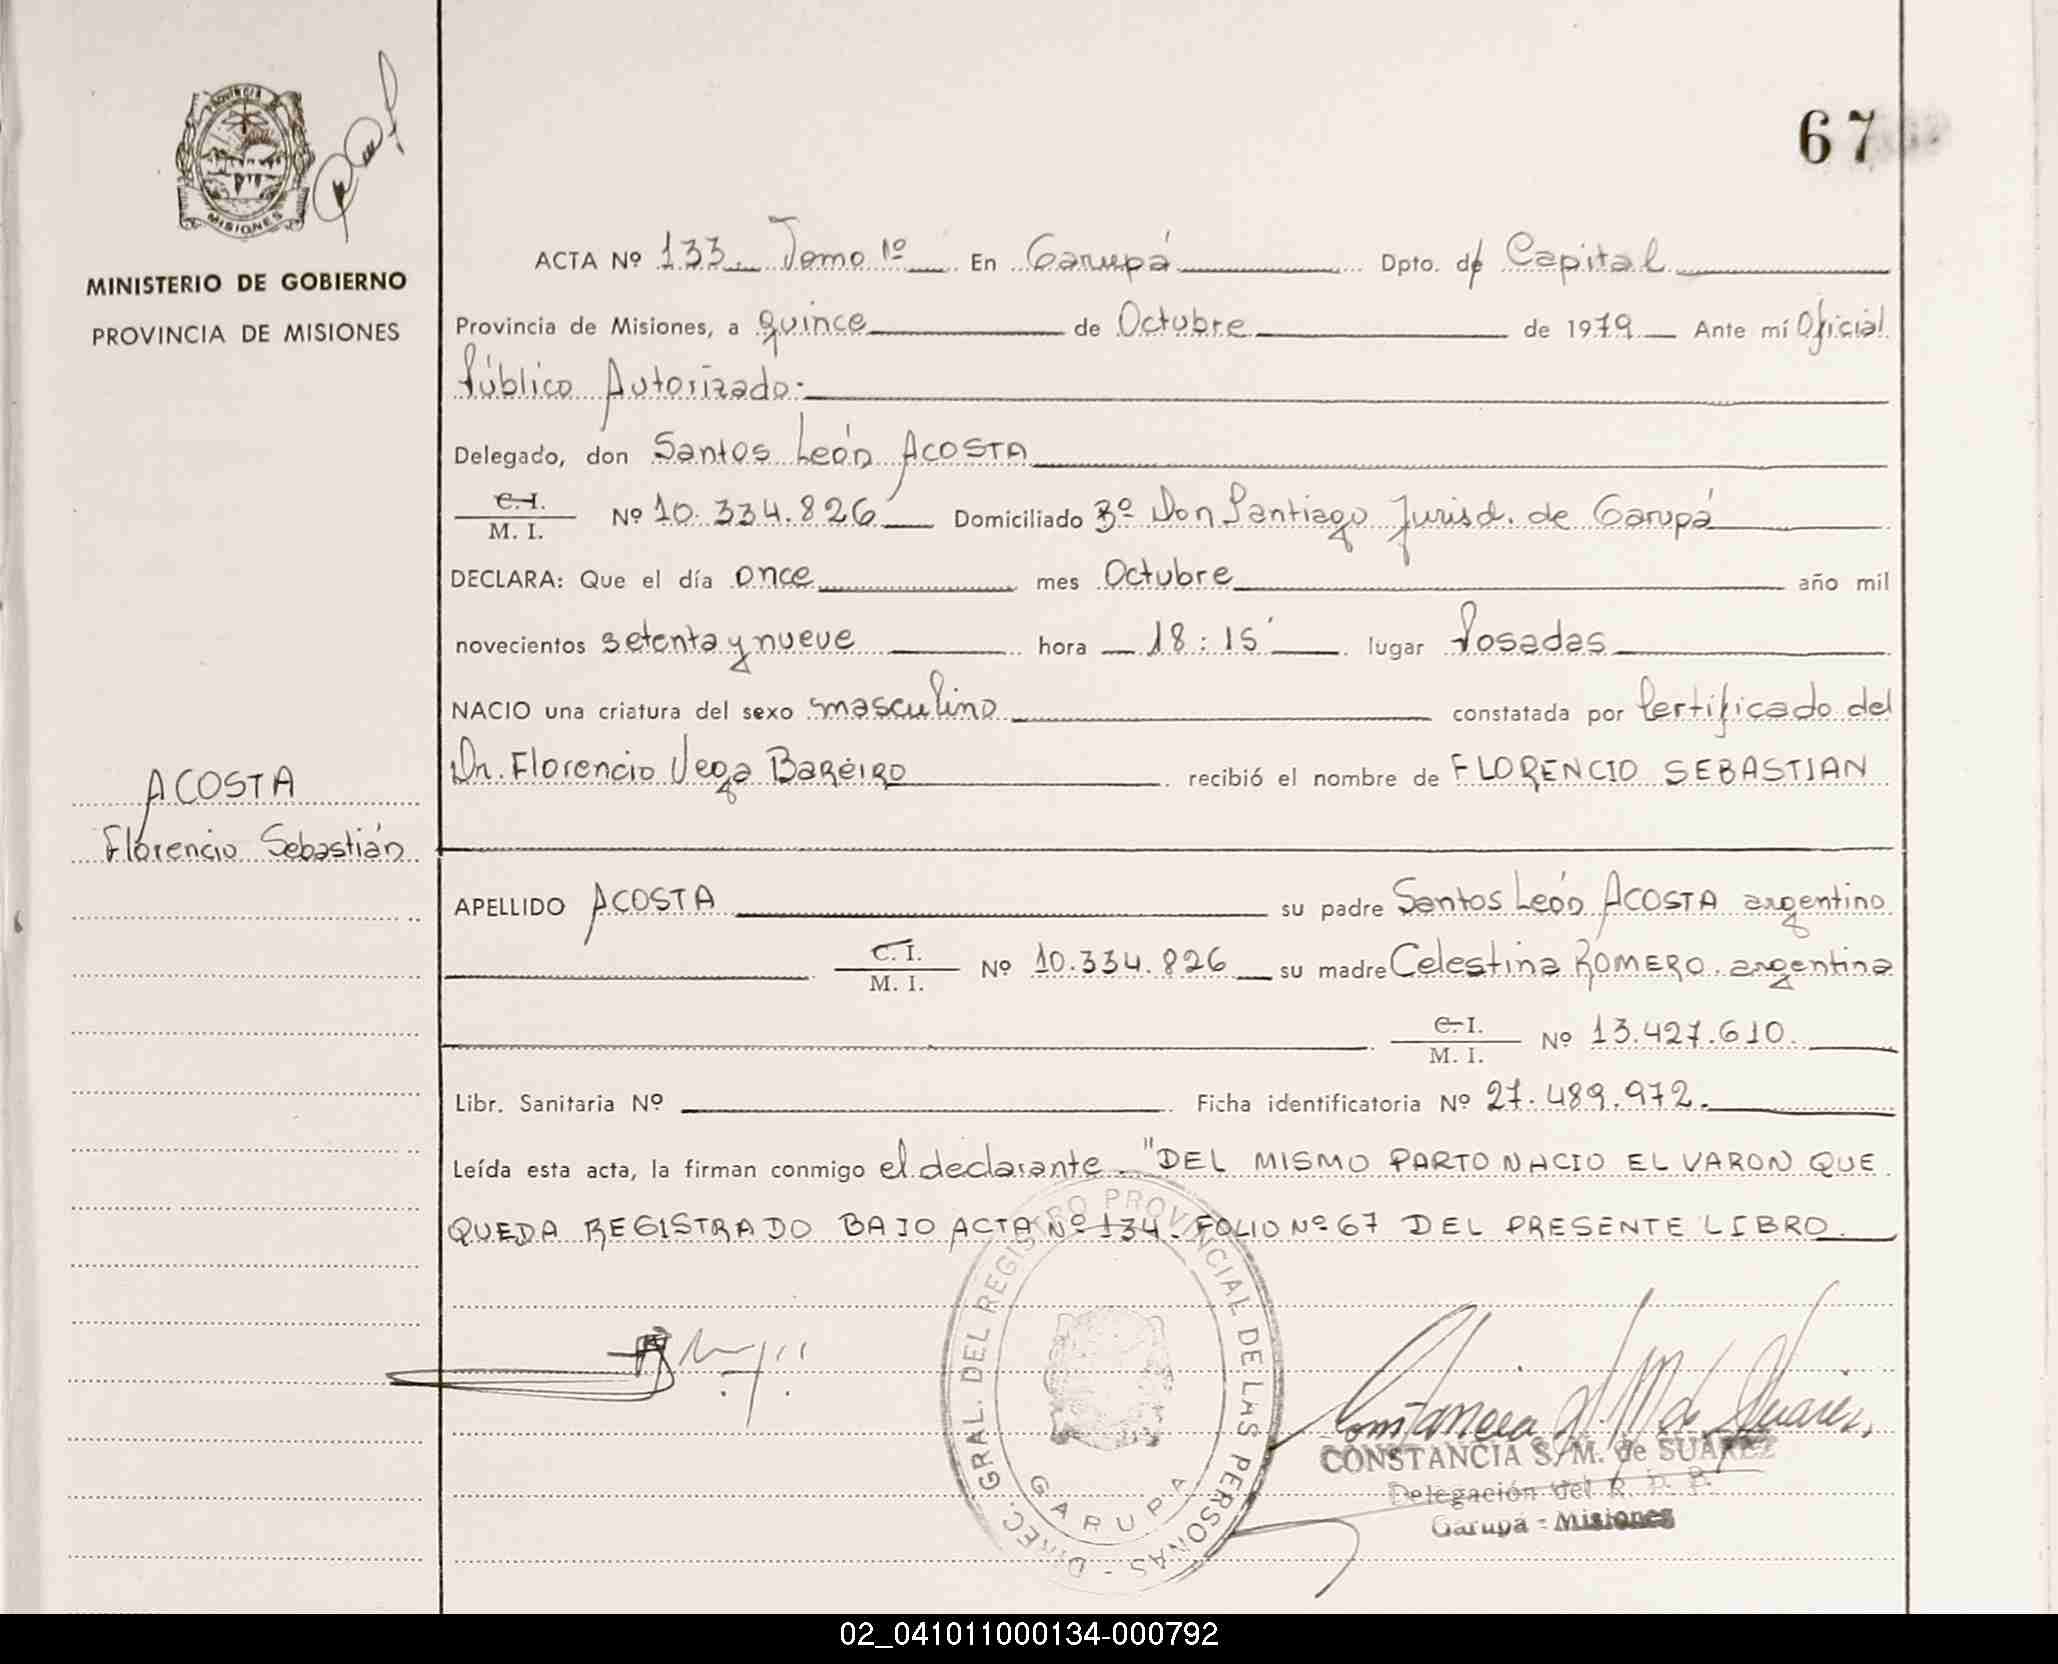 PROVINCIA DE
MISIONES
MINISTERIO DE GOBIERNO
PROVINCIA DE MISIONES
67
ACTA Nº 133 Tomo 1º En Garupá Dpto. de Capital
Provincia de Misiones, a quince de Octubre de 1979 Ante mí Oficial
Público Autorizado:
Delegado, don Santos León ACOSTA
C.I.
M. I. Nº 10.334.826 Domiciliado Bº Don Santiago Jurisd. de Garupá
DECLARA: Que el día once mes Octubre año mil
novecientos setenta y nueve hora 18:15' lugar Posadas
NACIO una criatura del sexo masculino constatada por Certificado del
Dr. Florencio Vega BAREIRO recibió el nombre de FLORENCIO SEBASTIAN
ACOSTA
Florencio Sebastián
APELLIDO ACOSTA su padre Santos León ACOSTA argentino
C.I.
M. I. Nº 10.334.826 su madre Celestina ROMERO. argentina
C.I.
M. I. Nº 13.427.610.
Libr. Sanitaria Nº Ficha identificatoria Nº 27.489.972.
Leída esta acta, la firman conmigo el declarante. "DEL MISMO PARTO NACIO EL VARON QUE
QUEDA REGISTRADO BAJO ACTA Nº 134. FOLIO Nº 67 DEL PRESENTE LIBRO
DIREC. GRAL. DEL REGISTRO PROVINCIAL DE LAS PERSONAS -
GARUPA
Constancia S. M. de Suarez
CONSTANCIA S. M. de SUAREZ
Delegación del R. P. P.
Garupá - Misiones
02_041011000134-000792